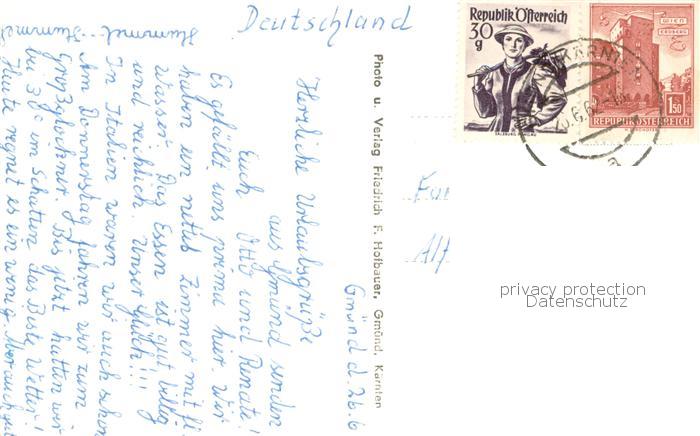 Deutschland
Republik Österreich
30
g
SALZBURG, PONGAU
WIEN
ERDBERG
1.50
REPUBLIK ÖSTERREICH
KÄRNTEN
Photo u. Verlag Friedrich F. Hofbauer, Gmünd, Kärnten
Gmünd d. 26.6
Herzliche Urlaubsgrüße
aus Gmünd senden
Euch Otto und Renate!
Es gefällt uns prima hier. Wir
haben ein nettes Zimmer mit fl.
Wasser. Das Essen ist gut billig
und reichlich. Unser Glück!!!
In Italien waren wir auch schon
Am Donnerstag fahren wir zum
Großglockner. Bis jetzt hatten wir
bei 30° im Schatten das Beste Wetter!
Heute regnet es ein wenig.
Hummel - Hummel
privacy protection
Datenschutz